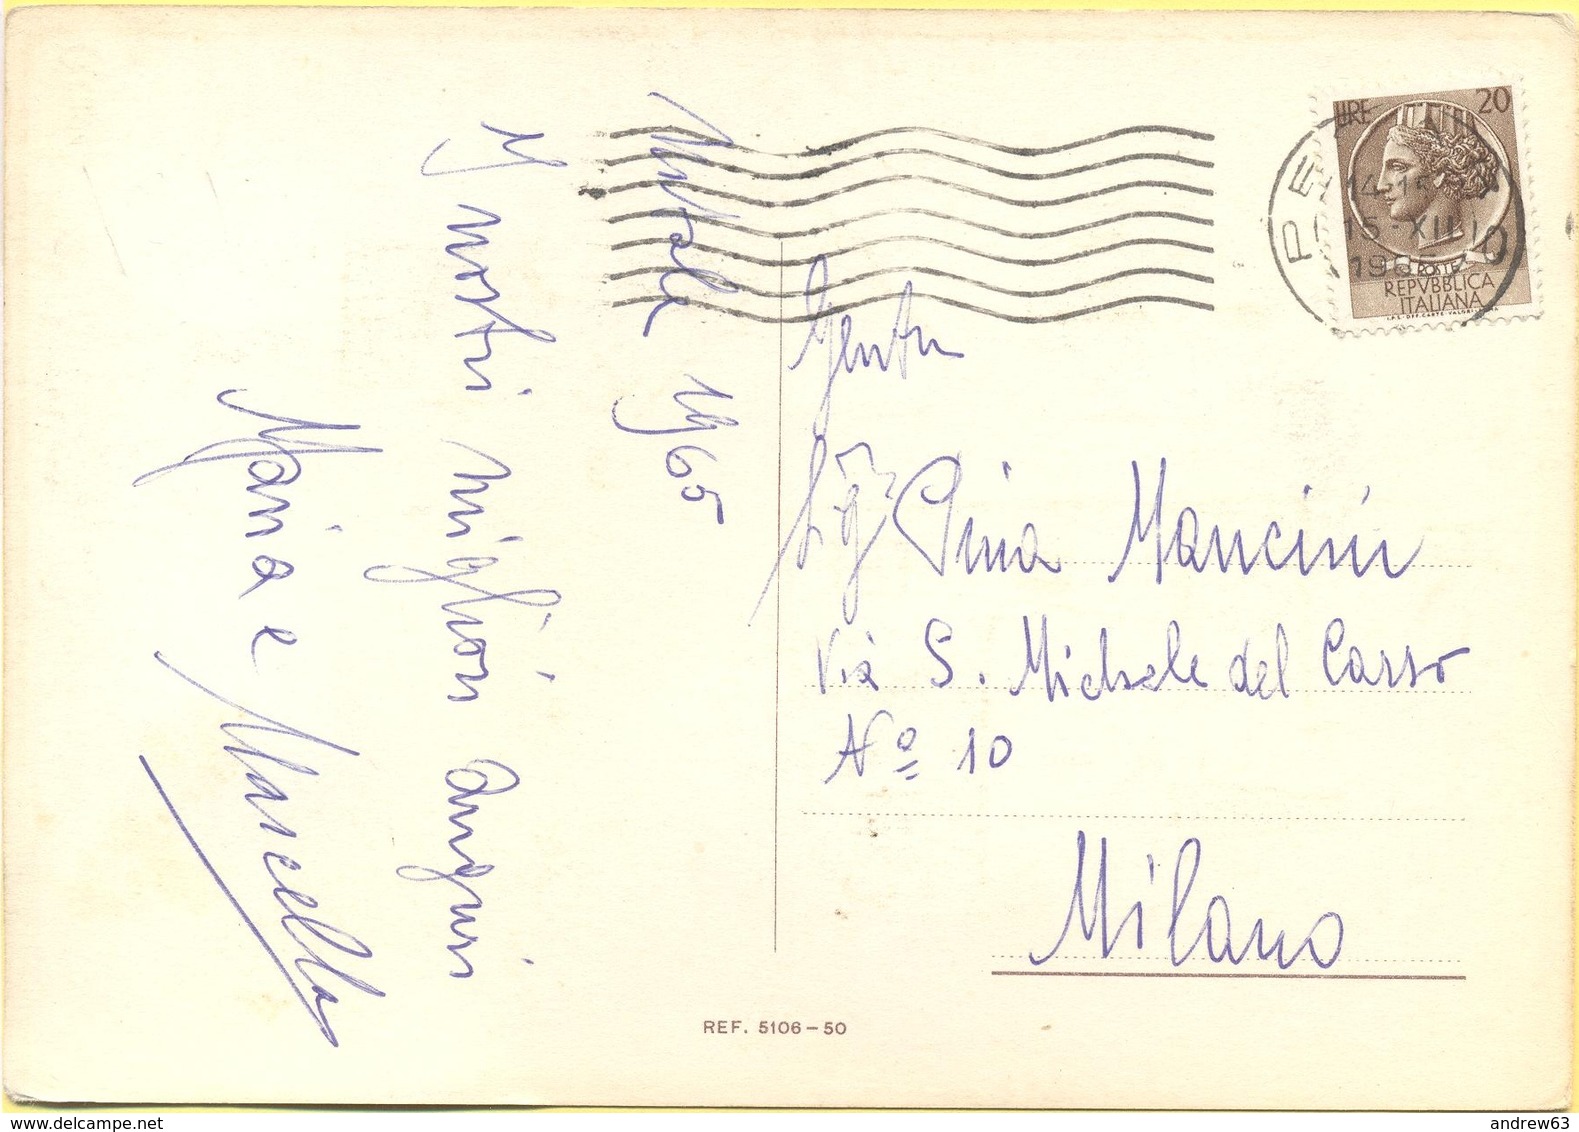 Natale 1965
I nostri migliori auguri
Maria e Marcella
LIRE 20
14-15
15-XII
POSTE
REPVBBLICA
ITALIANA
Gent.ma
Sig.ra Pina Mancini
Via S. Michele del Carso
Nº 10
Milano
REF. 5106-50
delcampe.net
andrew63